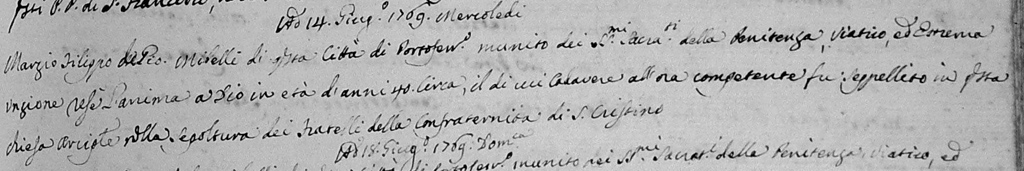 sti P. P. di S. Francesco,
Adì 14. Giug.º 1769. Mercoledi
Marzio Filippo del Eo. Mibelli di q̃sta Città di Portofer.º munito dei S.mi Sacra.ti della Penitenza, Viatico, ed Estrema
unzione rese l'anima a Dio in età d'anni 40. circa, il di cui Cadavere all'ora competente fu seppellito in q̃sta
chiesa Arcip̃le nella Sepoltura dei Fratelli della Confraternita di S. Cristino
Adì 18. Giug.º 1769. Dom.ca
di Portofer.º munito dei SS.mi Sacra.ti della Penitenza, Viatico, ed